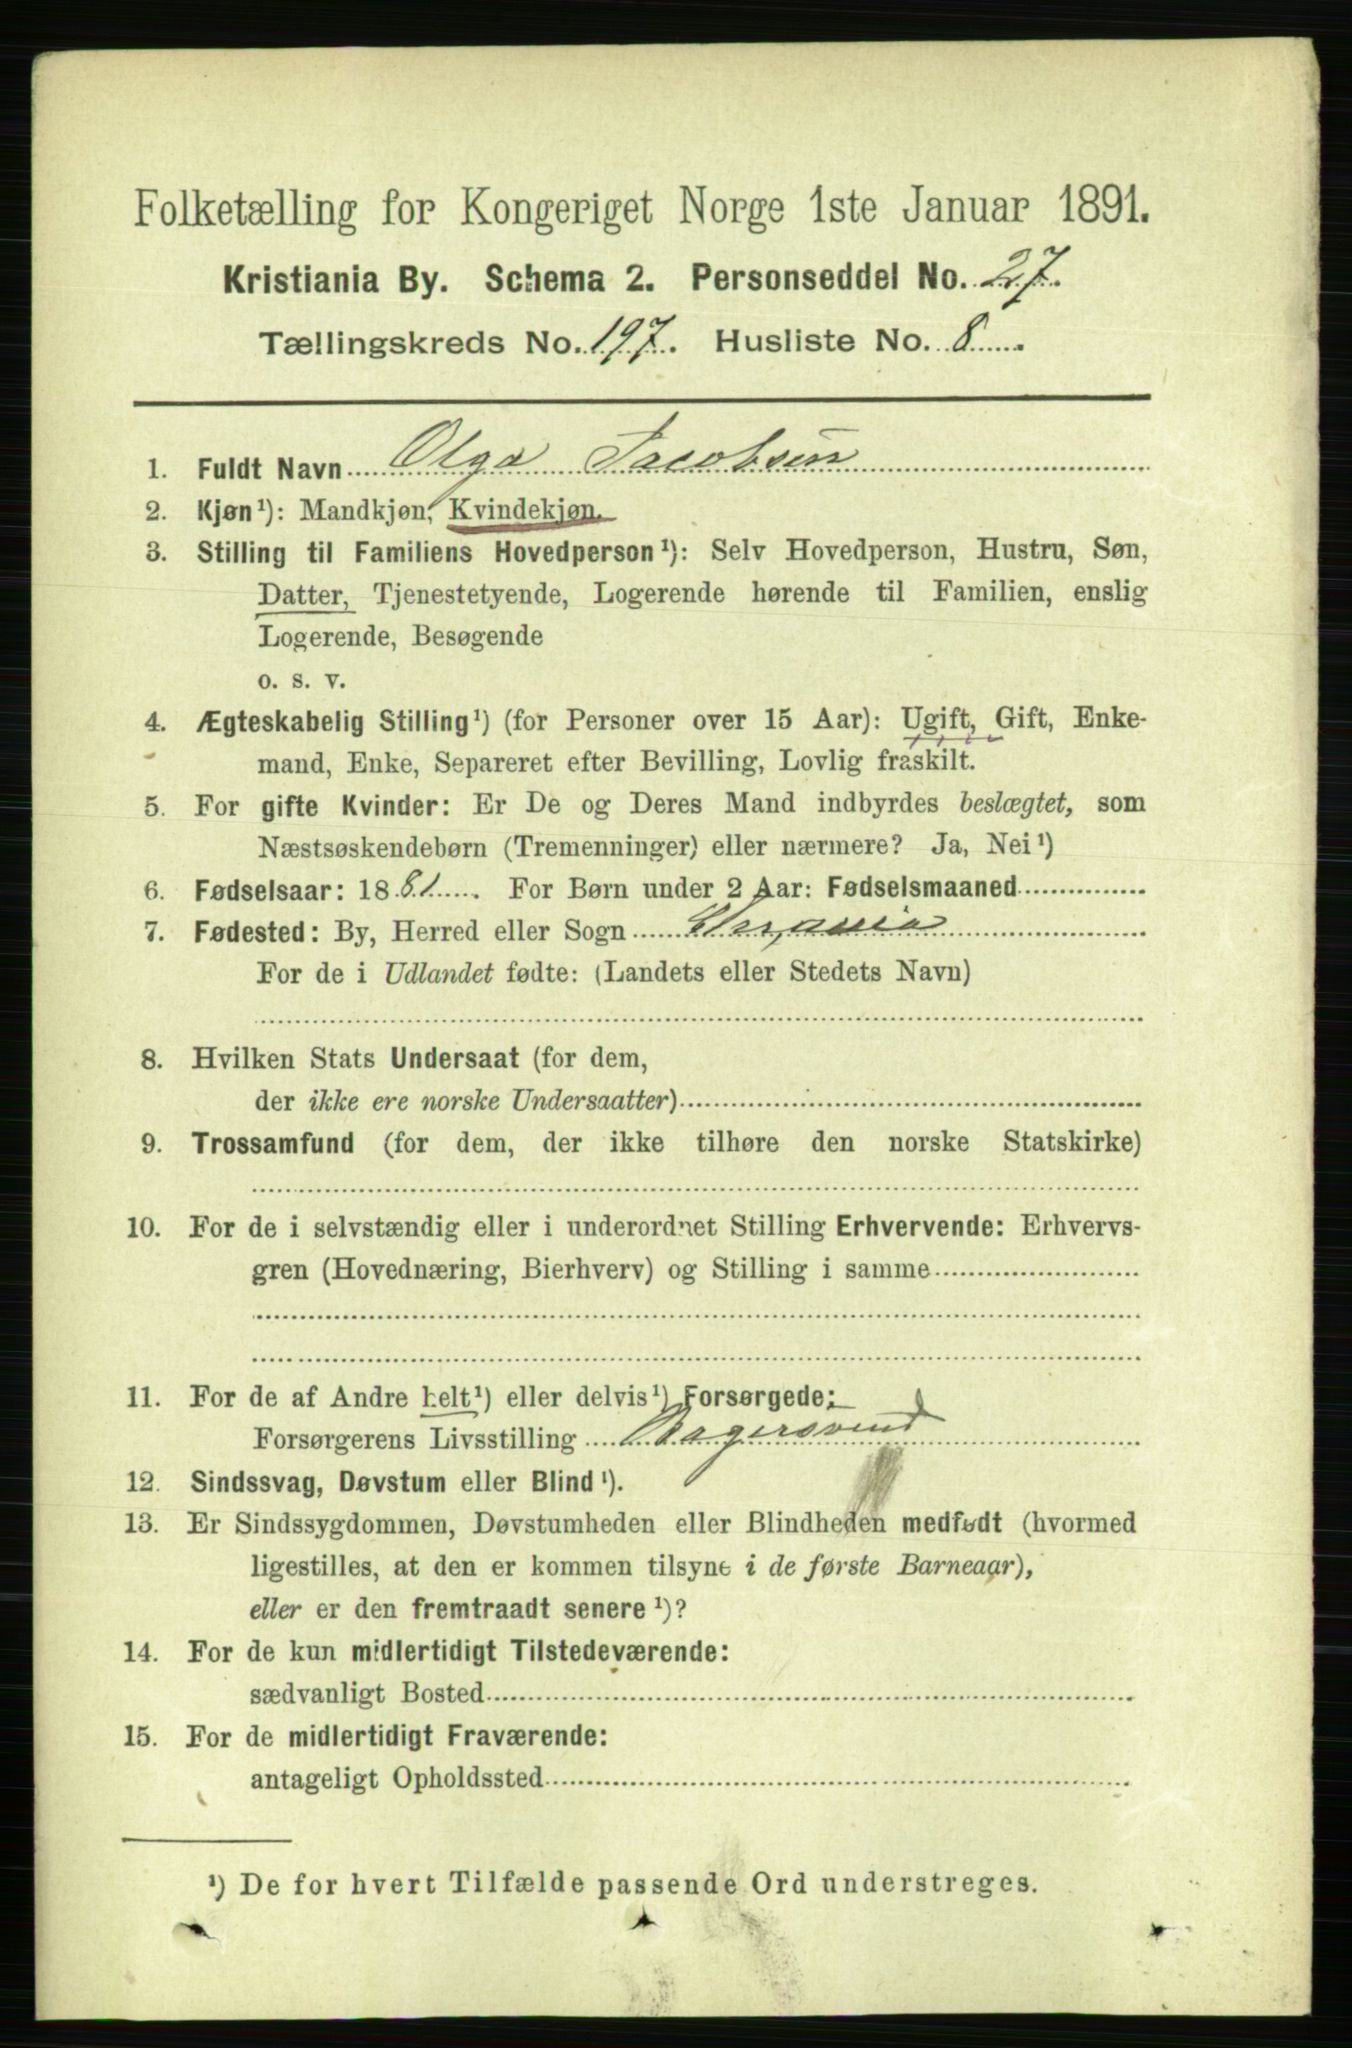 Folketælling for Kongeriget Norge 1ste Januar 1891.
Kristiania By. Schema 2. Personseddel No. 27.
Tællingskreds No. 197. Husliste No. 8.
1. Fuldt Navn Olga Jacobsen
2. Kjøn¹): Mandkjøn, Kvindekjøn.
3. Stilling til Familiens Hovedperson¹): Selv Hovedperson, Hustru, Søn,
Datter, Tjenestetyende, Logerende hørende til Familien, enslig
Logerende, Besøgende
o. s. v.
4. Ægteskabelig Stilling¹) (for Personer over 15 Aar): Ugift, Gift, Enke-
mand, Enke, Separeret efter Bevilling, Lovlig fraskilt.
5. For gifte Kvinder: Er De og Deres Mand indbyrdes beslægtet, som
Næstsøskendebørn (Tremenninger) eller nærmere? Ja, Nei¹)
6. Fødselsaar: 1881. For Børn under 2 Aar: Fødselsmaaned
7. Fødested: By, Herred eller Sogn Chrania
For de i Udlandet fødte: (Landets eller Stedets Navn)
8. Hvilken Stats Undersaat (for dem,
der ikke ere norske Undersaatter)
9. Trossamfund (for dem, der ikke tilhøre den norske Statskirke)
10. For de i selvstændig eller i underordnet Stilling Erhvervende: Erhvervs-
gren (Hovednæring, Bierhverv) og Stilling i samme
11. For de af Andre helt¹) eller delvis¹) Forsørgede:
Forsørgerens Livsstilling Bagersvend
12. Sindssvag, Døvstum eller Blind¹).
13. Er Sindssygdommen, Døvstumheden eller Blindheden medfødt (hvormed
ligestilles, at den er kommen tilsyne i de første Barneaar),
eller er den fremtraadt senere¹)?
14. For de kun midlertidigt Tilstedeværende:
sædvanligt Bosted
15. For de midlertidigt Fraværende:
antageligt Opholdssted
¹) De for hvert Tilfælde passende Ord understreges.